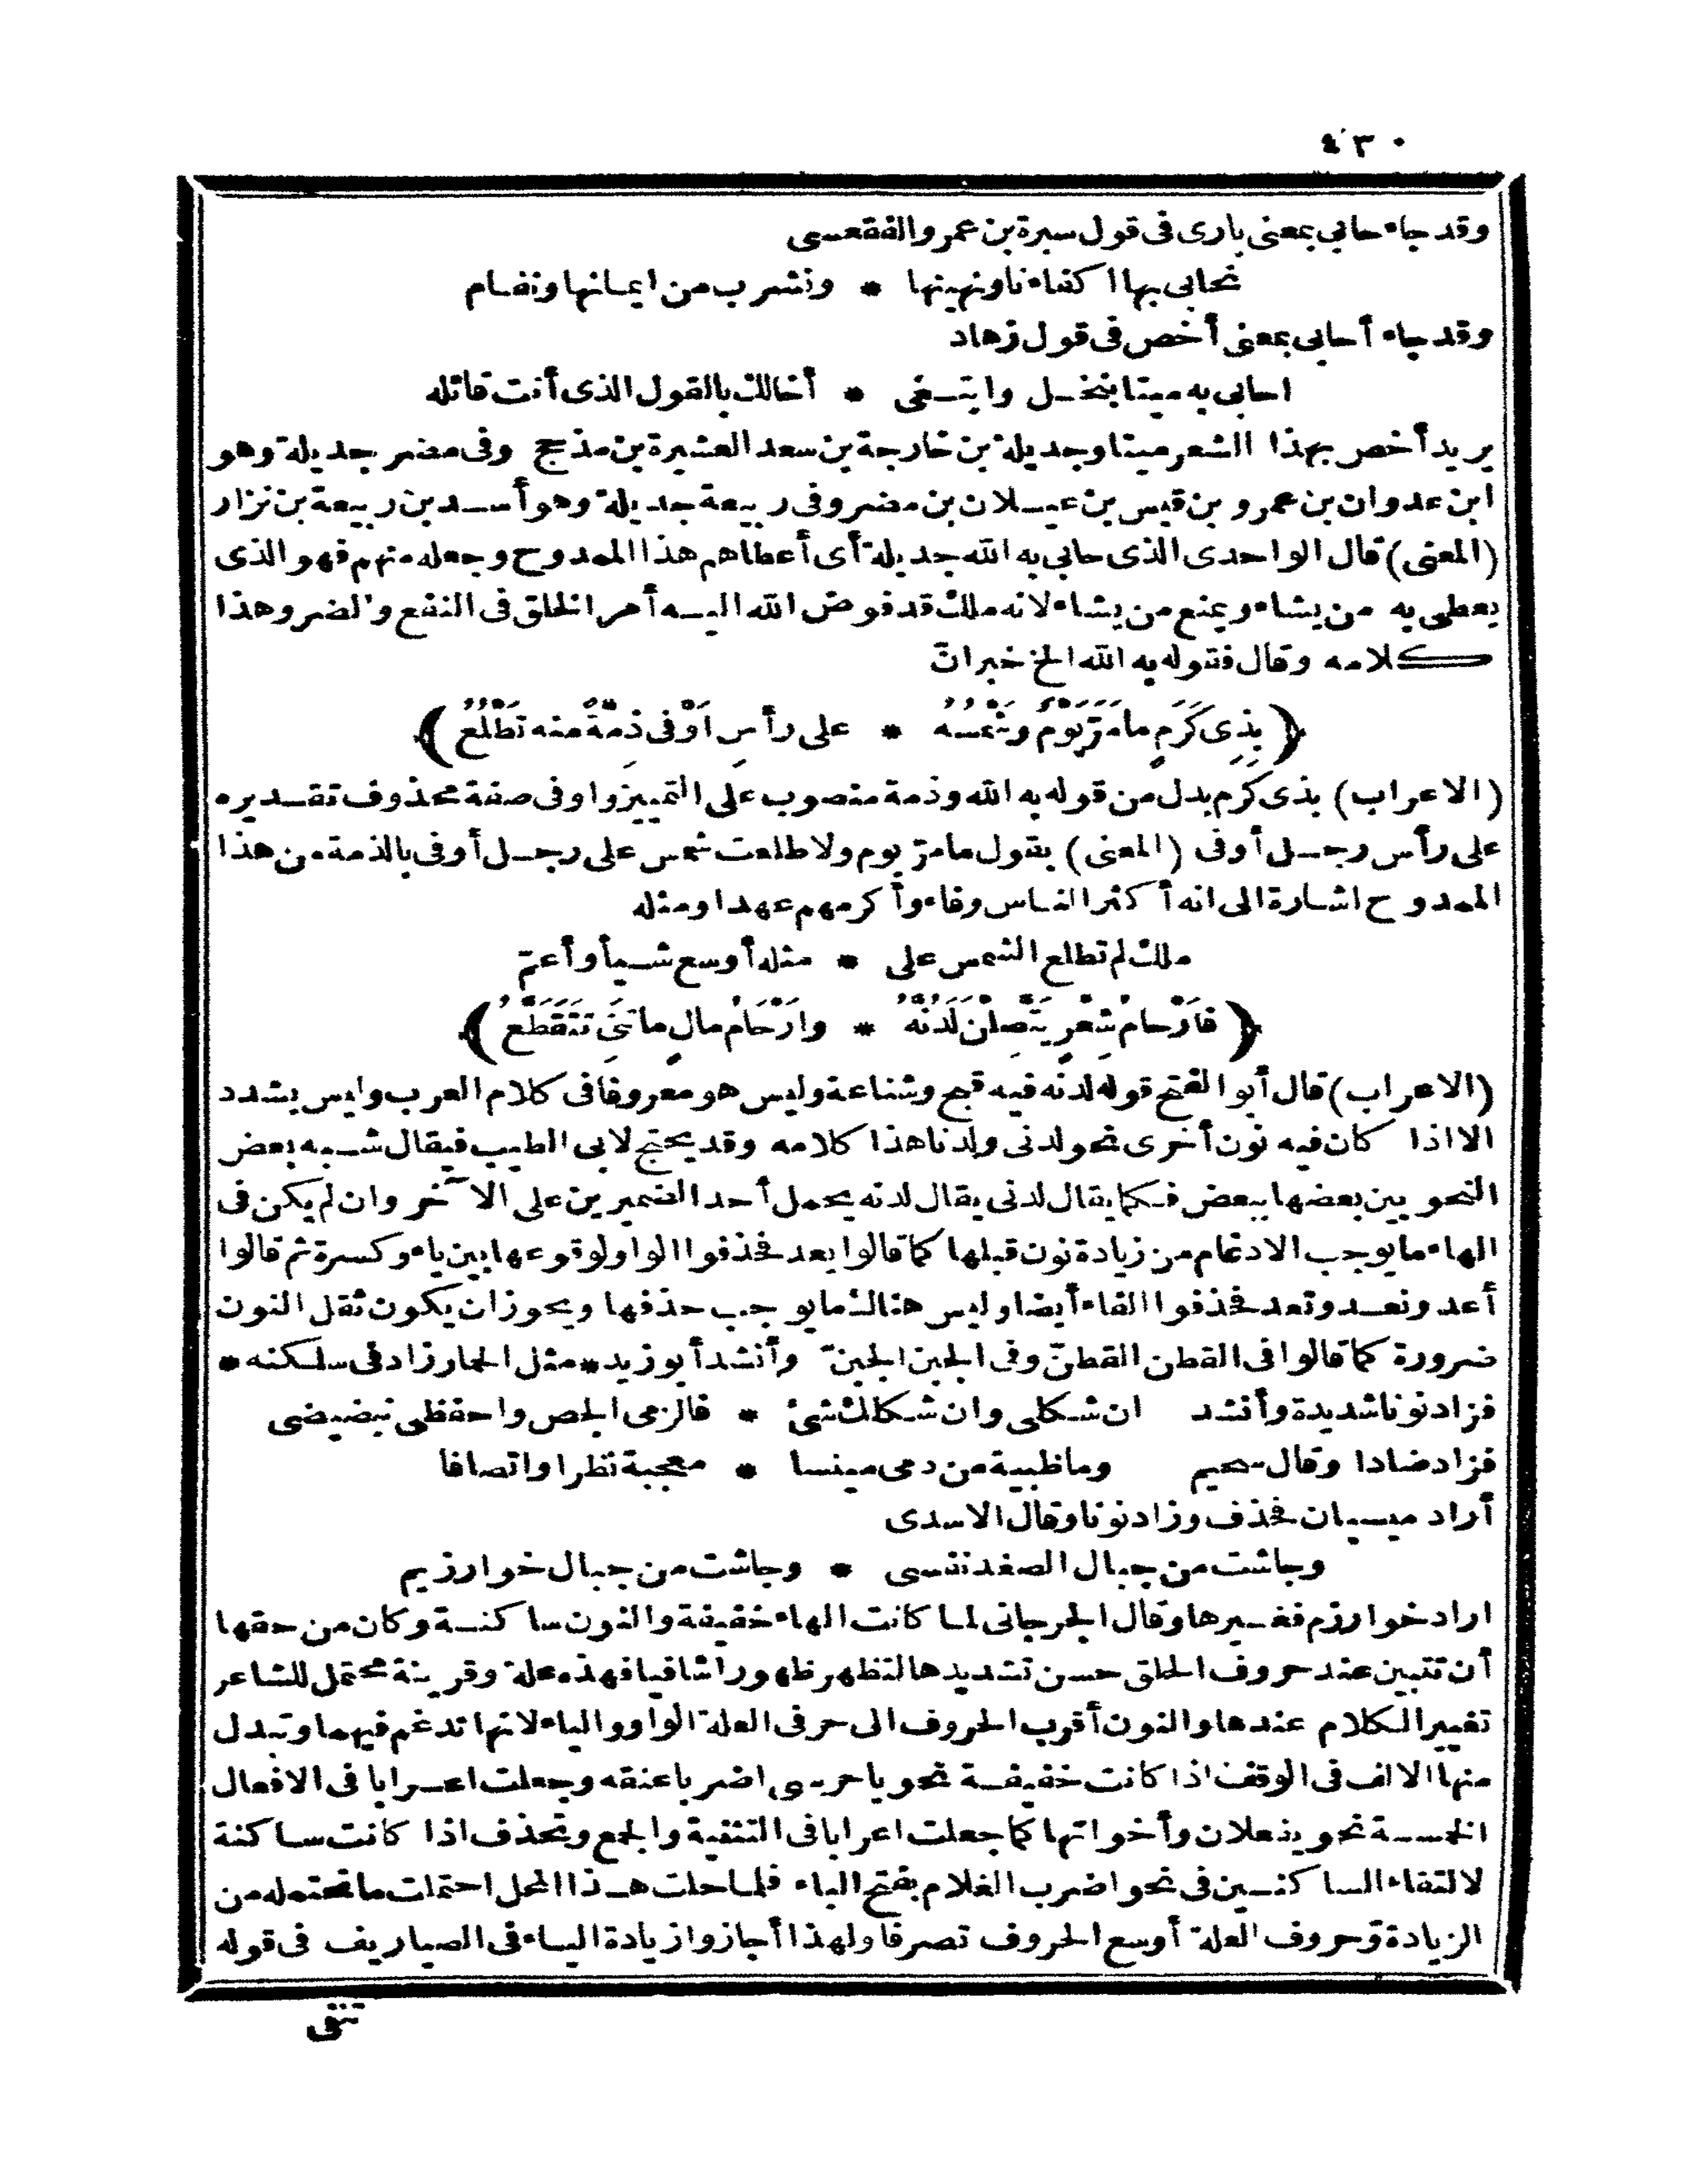 ٤٣٠
وقد جاء حابي بمعنى بارى فى قول سبرة بن عمرو الفقعسى
نحابى بها اكفاءنا ونهينها * ونشرب من ايمانها ونفام
وقد جاء أحابى بمعنى أخص فى قول زهاد
احابى به ميتا بنخـل وابتـغى * أخالك بالقول الذى أنت قائله
يريد أخص بهذا الشعر ميتا وجديلة بن خارجة بن سعد العشيرة بن مذحج وفى مضر جديلة وهو
ابن عدوان بن عمرو بن قيس بن عيـلان بن مضر وفى ربيعة جديلة وهو أسـد بن ربيعة بن نزار
(المعنى) قال الواحدى الذى حابى به الله جديلة أى أعطاهم هذا الممدوح وجعله منهم فهو الذى
يعطى به من يشاء ويمنع من يشاء لانه ملك قد فوض الله اليـه أمر الخلق فى النفع والضر وهذا
كلامه وقال فتوله به الله الخ خبران
﴿ بِذِى كَرَمٍ مامَرَّ يَوْمٌ وشَمْسُهُ * على رأسِ اَوْفى ذِمَّةً منه تَطْلُعُ ﴾
(الاعراب) بذى كرم بدل من قوله به الله وذمة منصوب على التمييز واوفى صفة محذوف تقـديره
على رأس رجـل أوفى (المعنى) يقول ما مرّ يوم ولا طلعت شمس على رجـل أوفى بالذمة من هذا
الممدوح اشـارة الى انه أكثر النـاس وفاء وأكرمهم عهدا ومثله
ملك لم تطلع الشمس على * مثله أوسع شـيأ وأعمّ
﴿ فاَرْحامُ شِعْرٍ يَتَّصِلْنَ لَدُنَّهُ * وارْحَامُ مالٍ ماتَنِى تَتَقَطَّعُ ﴾
(الاعراب) قال أبو الفتح قوله لدنه فيه قبح وشناعة وليس هو معروفا فى كلام العرب وليس يشدد
الا اذا كان فيه نون أخرى نحو لدنى ولدنا هذا كلامه وقد يحتج لابى الطيب فيقال شـبه بعض
النحو يين بعضها ببعض فـكما يقال لدنى يقال لدنه يحمل أحد الضميرين على الآخر وان لم يكن فى
الهاء ما يوجب الادغام من زيادة نون قبلها كما قالوا يعد فحذفوا الواو لوقوعها بين ياء وكسرة ثم قالوا
أعد ونعـد وتعد فحذفوا الفاء أيضا وليس هناك ما يوجب حذفها ويجوز ان يكون ثقل النون
ضرورة كما قالوا فى القطن القطنّ وفى الجبن الجبنّ وأنشد أبو زيد * مثل الحمار زاد فى سلـكنه *
فزاد نونا شديدة وأنشد ان شـكلى وان شـكلك شتى * فالزمى الخص واحفظى تبضيضى
فزاد ضادا وقال سحيم وما ظبية من دمى مينسا * معجبة نظرا واتصافا
أراد ميسـان فحذف وزاد نونا وقال الاسدى
وجاشت من جبال الصغد نفسى * وجاشت من جبال خوارزيم
اراد خوارزم فغـيرها وقال الجرجانى لمـا كانت الهاء خفيفة والنون ساكنـة وكان من حقها
أن تتبين عند حروف الحلق حسن تشديدها لتظهر ظهورا شافيا فهذه علة وقرينة محتمل للشاعر
تغيير الـكلام عندها والنون أقرب الحروف الى حرفى العلة الواو والياء لانها تدغم فيهما وتبدل
منها الالف فى الوقف اذا كانت خفيفـة نحو يا حرسى اضربا عنقه وجعلت اعـرابا فى الافعال
الخمسـة نحو يفعلان وأخواتها كما جعلت اعرابا فى التثنية والجمع وتحذف اذا كانت سـاكنة
لالتقاء السـاكنـين فى نحو اضرب الغلام بفتح الباء فلمـا حلت هـذا المحل احتملت ما تحتمله من
الزيادة وحروف العلة أوسع الحروف تصرفا ولهذا أجازوا زيادة اليـاء فى الصياريف فى قوله
تنفى